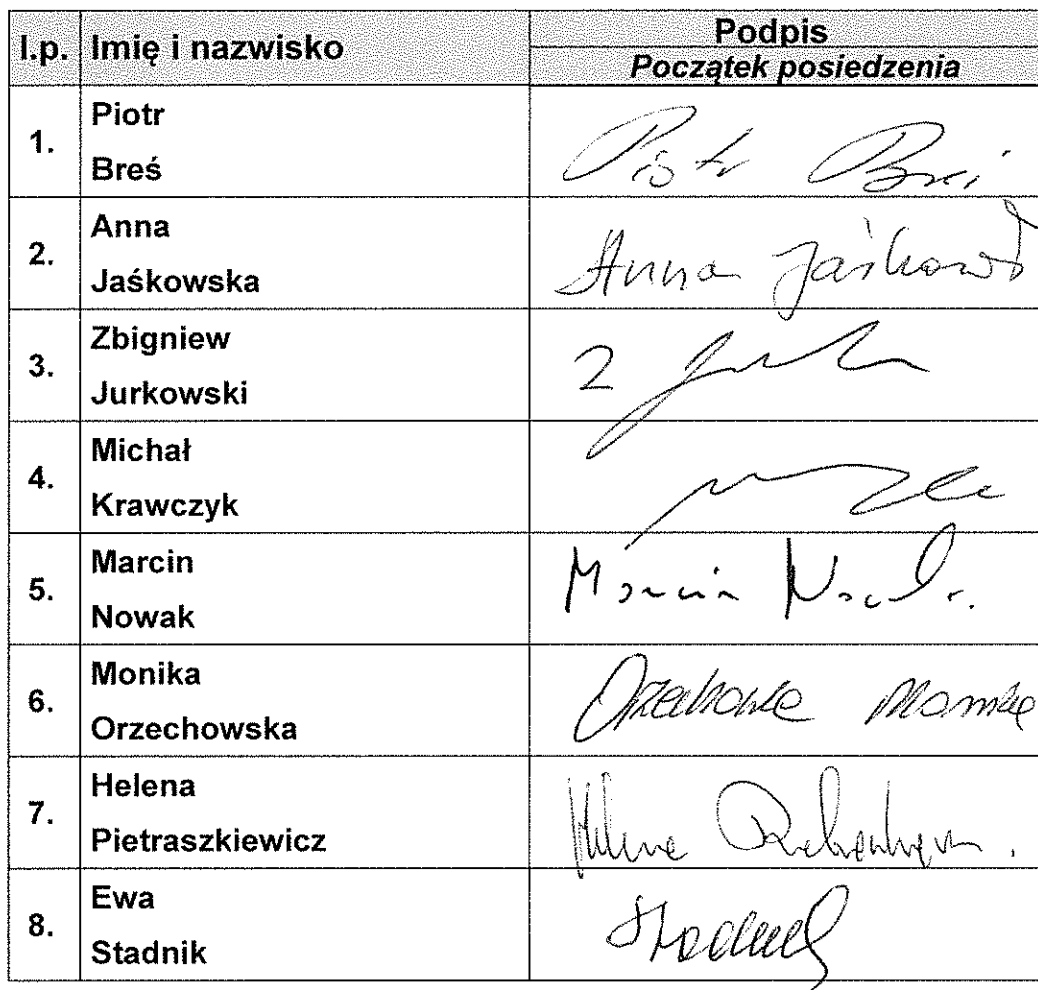 l.p. Imię i nazwisko Podpis
Początek posiedzenia
1. Piotr
Breś
Piotr Breś
2. Anna
Jaśkowska
Anna Jaśkows
3. Zbigniew
Jurkowski
4. Michał
Krawczyk
5. Marcin
Nowak
Marcin Nowak.
6. Monika
Orzechowska
Monika
7. Helena
Pietraszkiewicz
Helena
8. Ewa
Stadnik
Stadnik